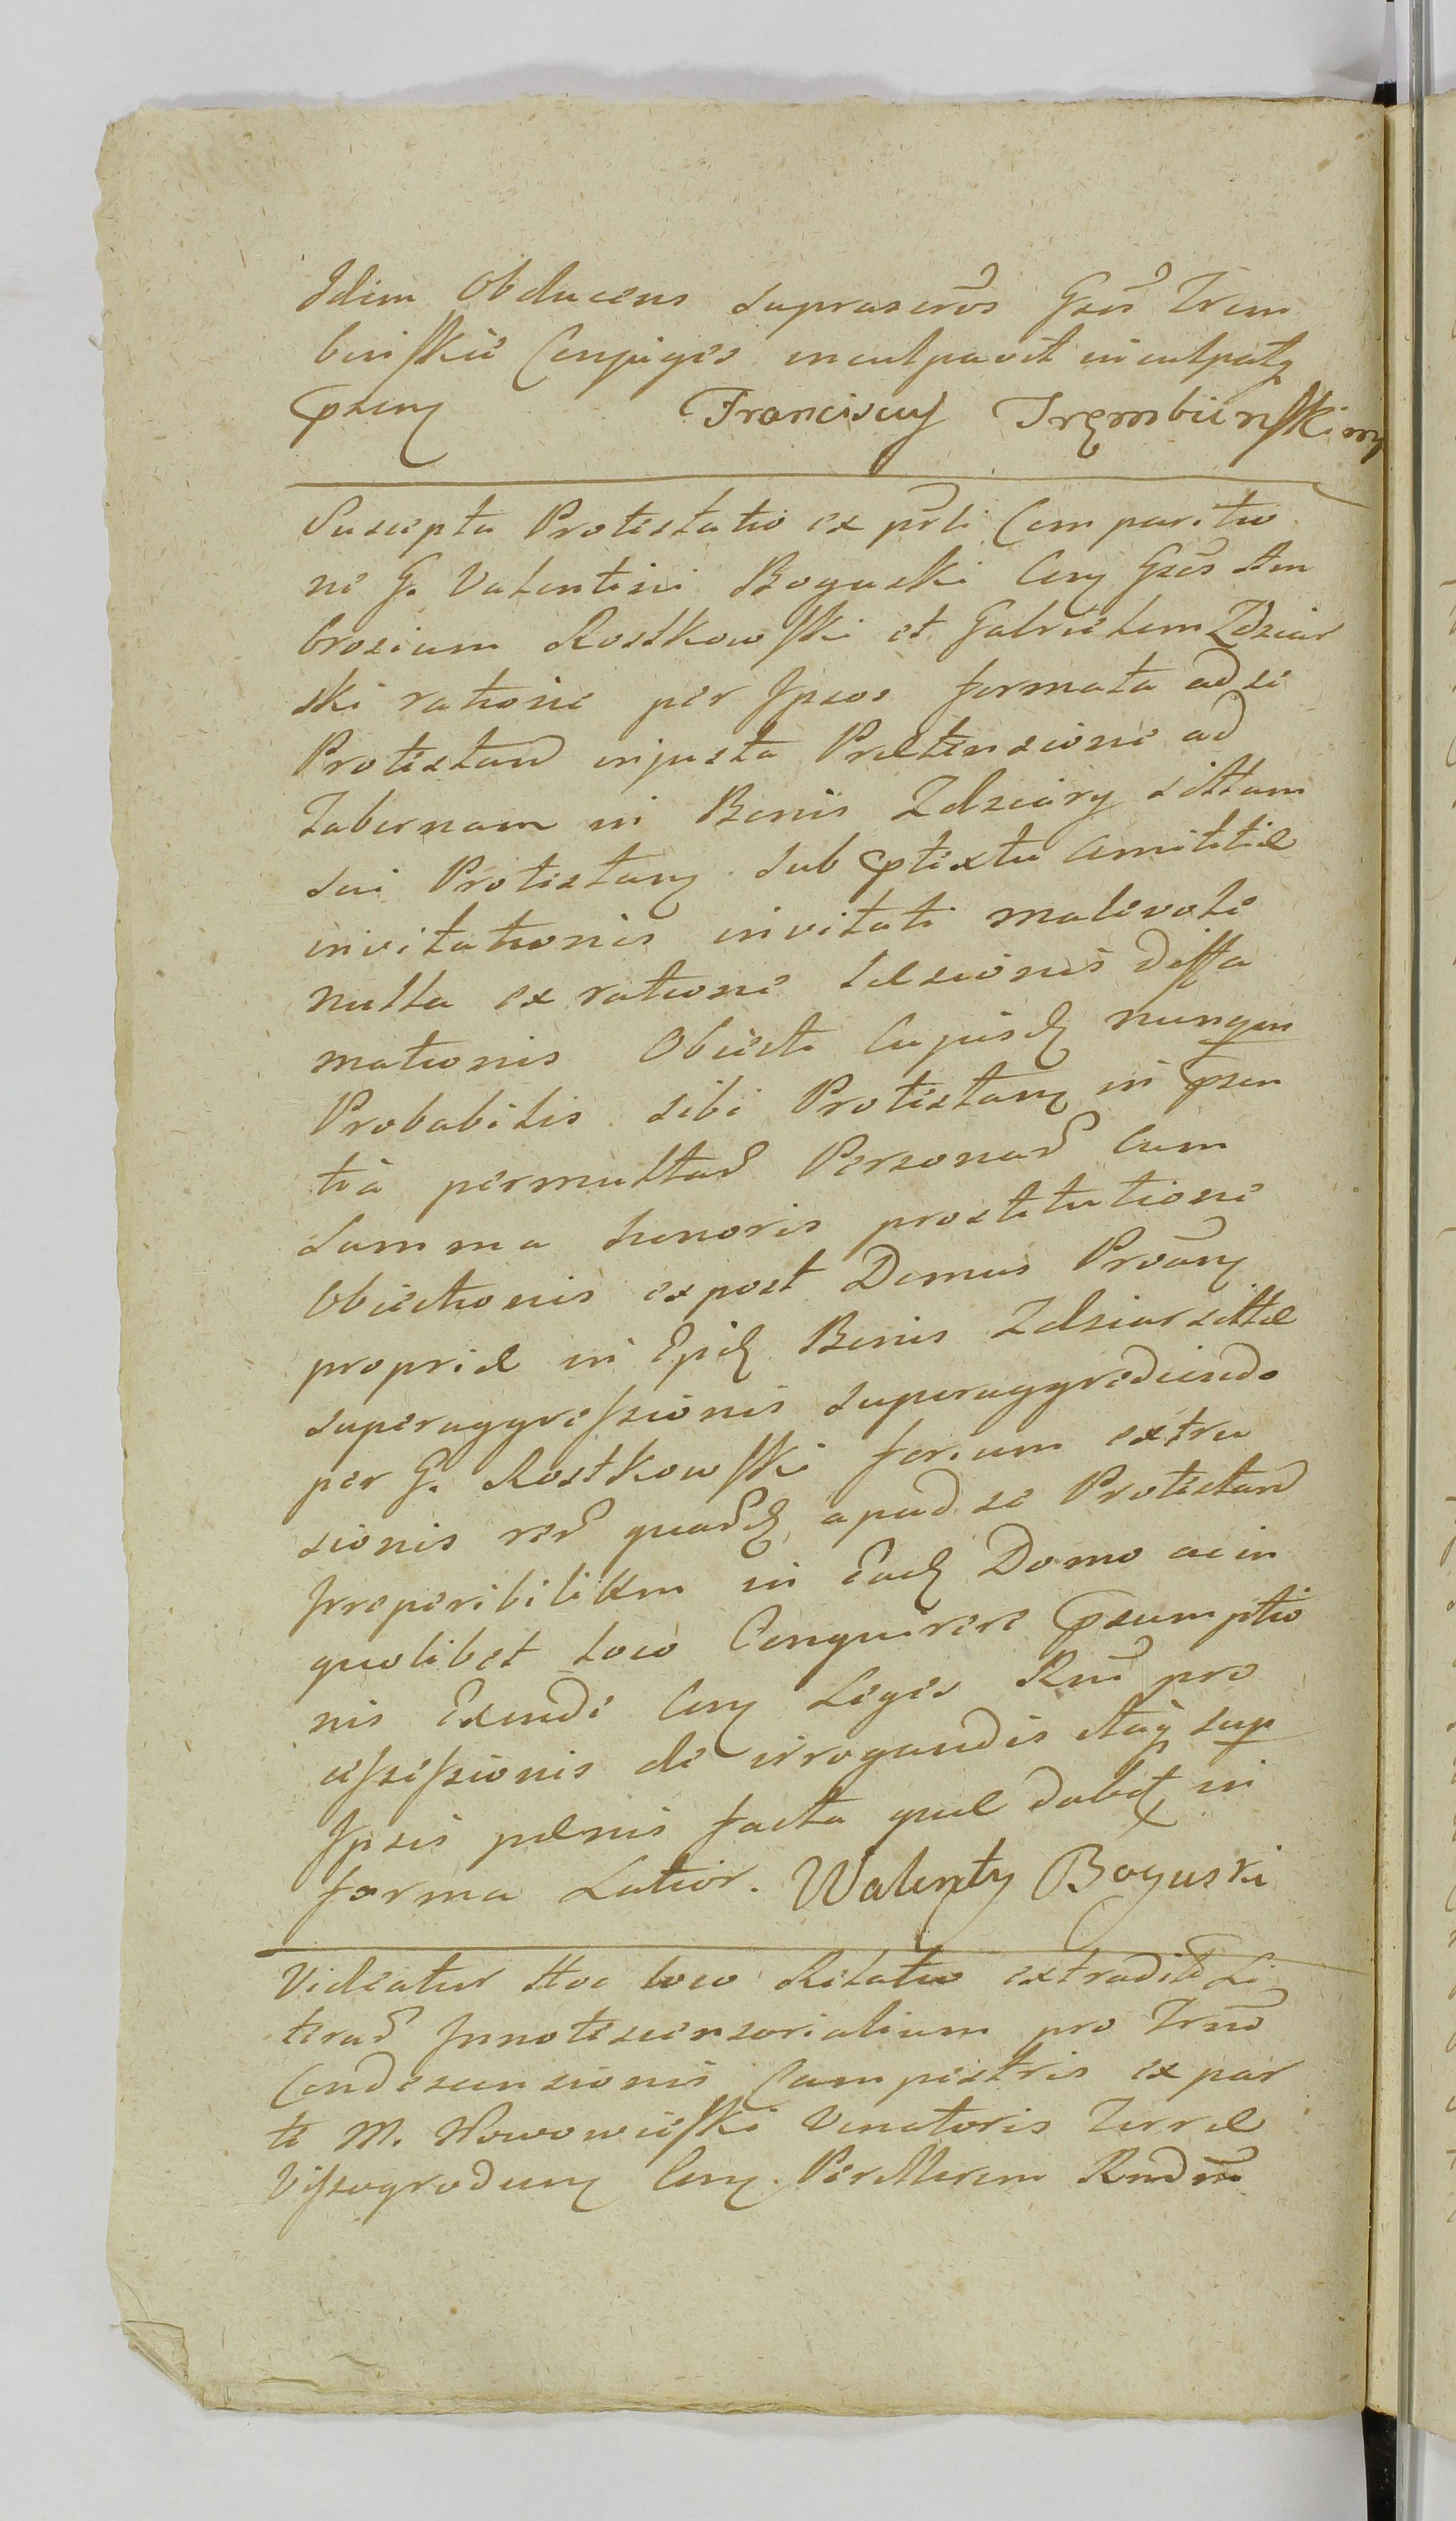 Idem Obducens suprascros Gsos Trem
binskie Conjuges inculpavit inculpatq
pszens Franciscus Trębinski mp
Suscepta Protestatio ex psli Comparitio
ne G. Valentini Boguski Con Gsos Am
brosium Rostkowski et Gabrielem Zdziar
ski ratione per Ipsos formata ad se
Protestand injusta Prætensione ad
Tabernam in Bonis Zdziary sittam
sui Protestan sub ptextu Amititiæ
invitationis invitati malevole
nulla ex ratione læsionis diffa
mationis Obiecti Cujusd nunqm
Probabilis sibi Protestan in psen
tia permultar Personar Cum
summa honoris prostitutione
Obiectionis expost Domus Proan
propriæ in Epid Bonis Zdziar sittæ
superaggressionis superaggrediendo
per G. Rostkowski forium extru
sionis rer quard apud se Protestand
Irreperibilium in Ead Domo ac in
quolibet loco Conquirere psumptio
nis Exinde Con Leges Rni pro
cessessionis de irrogandis itaq sup
Ipsis pænis facta quæ dabit in
forma Latior. Walenty Boguski
Videatur Hoc loco Relatio extradit Li
terar Innotescensorialium pro Trmo
Condescensionis Campestris ex par
te M. Nowowieski Venatoris Terræ
Vissogroden Con. Perillrem Rndum